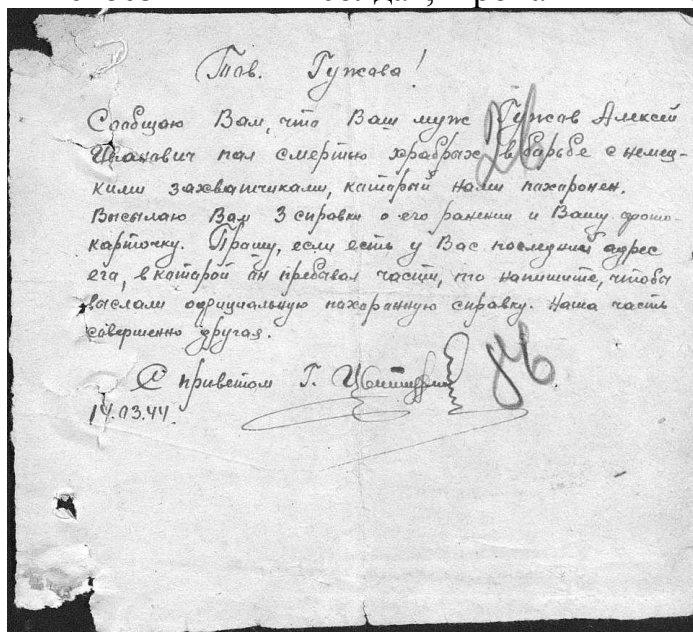 Тов. Гужова!
Сообщаю Вам, что Ваш муж Гужов Алексей
Иванович пал смертью храбрых в борьбе с немец-
кими захватчиками, катарый нами пахаронен.
Высылаю Вам 3 справки о его ранении и Вашу фото-
карточку. Прашу, если есть у Вас последний адрес
ега, в катарой он пребывал части, то напишите, чтобы
выслали официальную пахаранную справку. Наша часть
совершенно другая.
С приветом Г.
14.03.44.